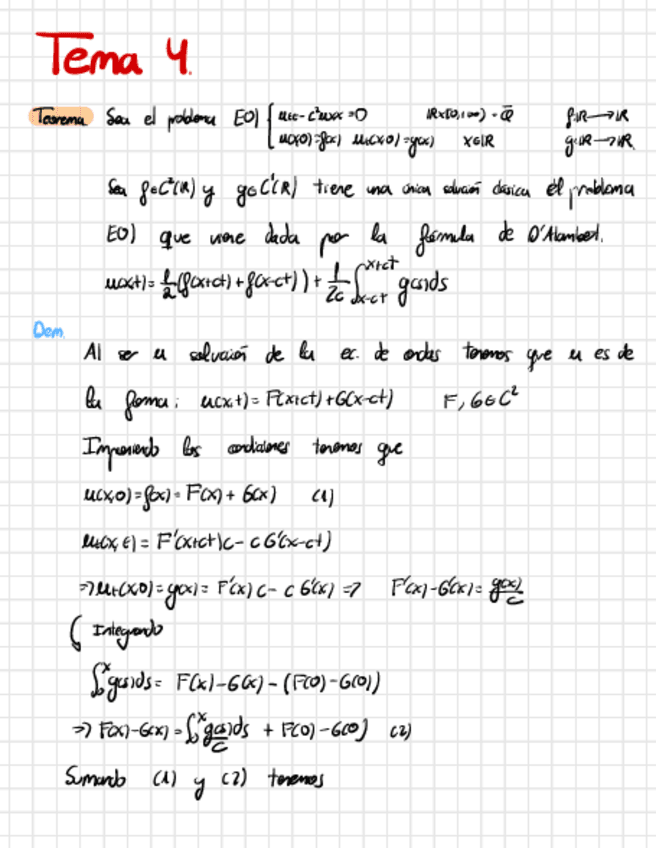 Tema 4.
Teorema Sea el problema EO) { utt - c²uxx = 0 ℝx[0,+∞) = Q̄ f:ℝ→ℝ
u(x,0)=f(x) ut(x,0)=g(x) x∈ℝ g:ℝ→ℝ
Sea f∈C²(ℝ) y g∈C¹(ℝ) tiene una única solución clásica el problema
EO) que viene dada por la fórmula de D'Alambert.
u(x,t) = 1/2 (f(x+ct) + f(x-ct)) + 1/2c ∫_{x-ct}^{x+ct} g(s)ds
Dem.
Al ser u solución de la ec. de ondas tenemos que u es de
la forma: u(x,t) = F(x+ct) + G(x-ct) F, G ∈ C²
Imponiendo las condiciones tenemos que
u(x,0) = f(x) = F(x) + G(x) (1)
ut(x,t) = F'(x+ct)c - c G'(x-ct)
⇒ ut(x,0) = g(x) = F'(x) c - c G'(x) ⇒ F'(x) - G'(x) = g(x)/c
( Integrando
∫_0^x g(s)ds = F(x) - G(x) - (F(0) - G(0))
⇒ F(x) - G(x) = ∫_0^x g(s)/c ds + F(0) - G(0) (2)
Sumando (1) y (2) tenemos